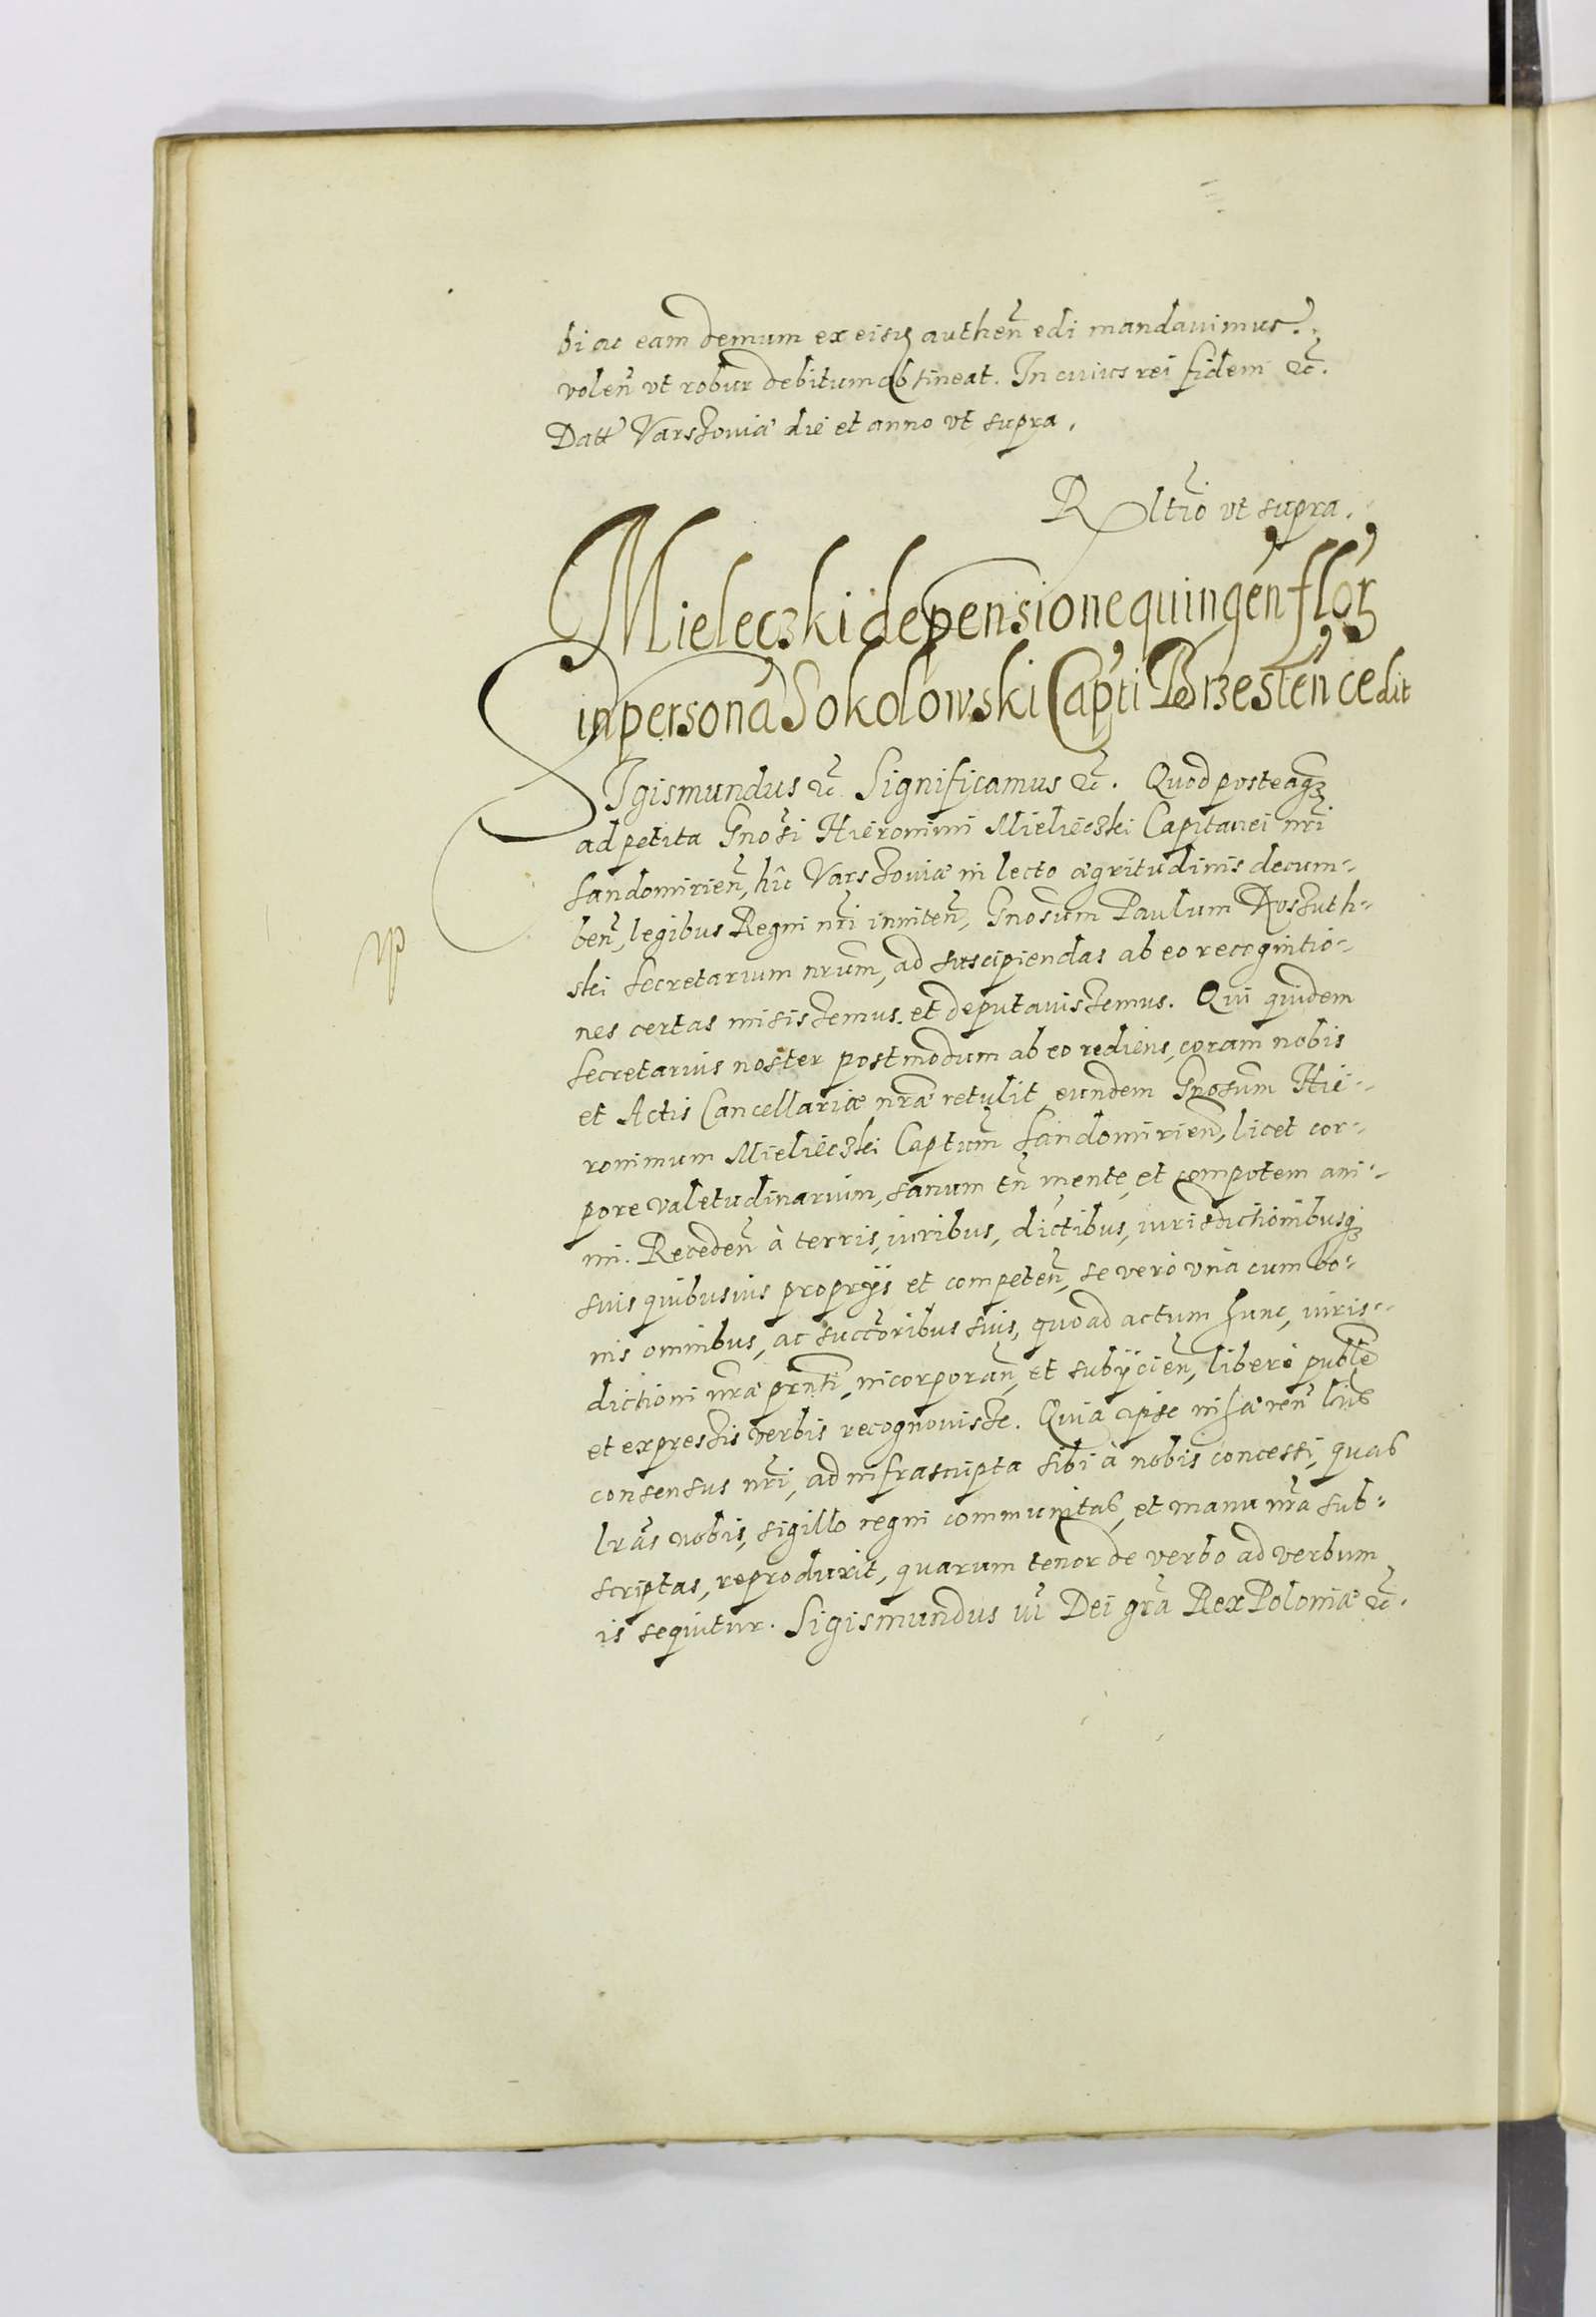 bi ac eam demum ex eisq̃ authen̄ edi mandauimus.
volen̄ vt robur debitum obtineat. In cuius rei fidem &c̄.
Datt Varszouiæ die et anno vt supra.
R ltĩo vt supra.
Mieleczki de pensione quingen̄ flor̄
in persona Sokolowski Capti Brzesten̄ cedit
SIgismundus &c̄ Significamus &c̄. Quod posteaq̃
ad petita Gnosi Hieronimi Mielieczki Capitanei nr̄i
Sandomirien̄, hîc Varszouiæ in lecto ægritudinis decum-
ben̄, legibus Regni nr̄i inniten̄, Gnosum Paulum Koszuth-
ski Secretarium nrum, ad suscipiendas ab eo recognitio-
nes certas misiszemus et deputauiszemus. Qui quidem
Secretarius noster postmodum ab eo rediens, coram nobis
et Actis Cancellariæ nr̄æ retulit eundem Gnosum Hie-
ronimum Mielieczki Captum Sandomirien̄, licet cor-
pore valetudinarium, sanum tn̄ mente, et compotem ani-
mi. Receden̄ à terris, iuribus, dictibus, iurisdictionibusq̃
suis quibusuis proprijs et competen̄, se verò vnà cum bo-
nis omnibus, ac succoribus suis, quoad actum hunc, iuris-
dictioni nr̄æ prn̄ti, incorporan̄, et subijcien̄, liberè puble
et expreszis verbis recognouisze. Quia ipse lr̄is
consensus nr̄i, ad infrascripta sibi à nobis concessi, quas
lr̄as nobis, sigillo regni communitas, et manu nr̄a sub-
scriptas, reproduxit, quarum tenor de verbo ad verbum
is sequitur. Sigismundus III Dei gr̄a Rex Poloniæ &c̄.